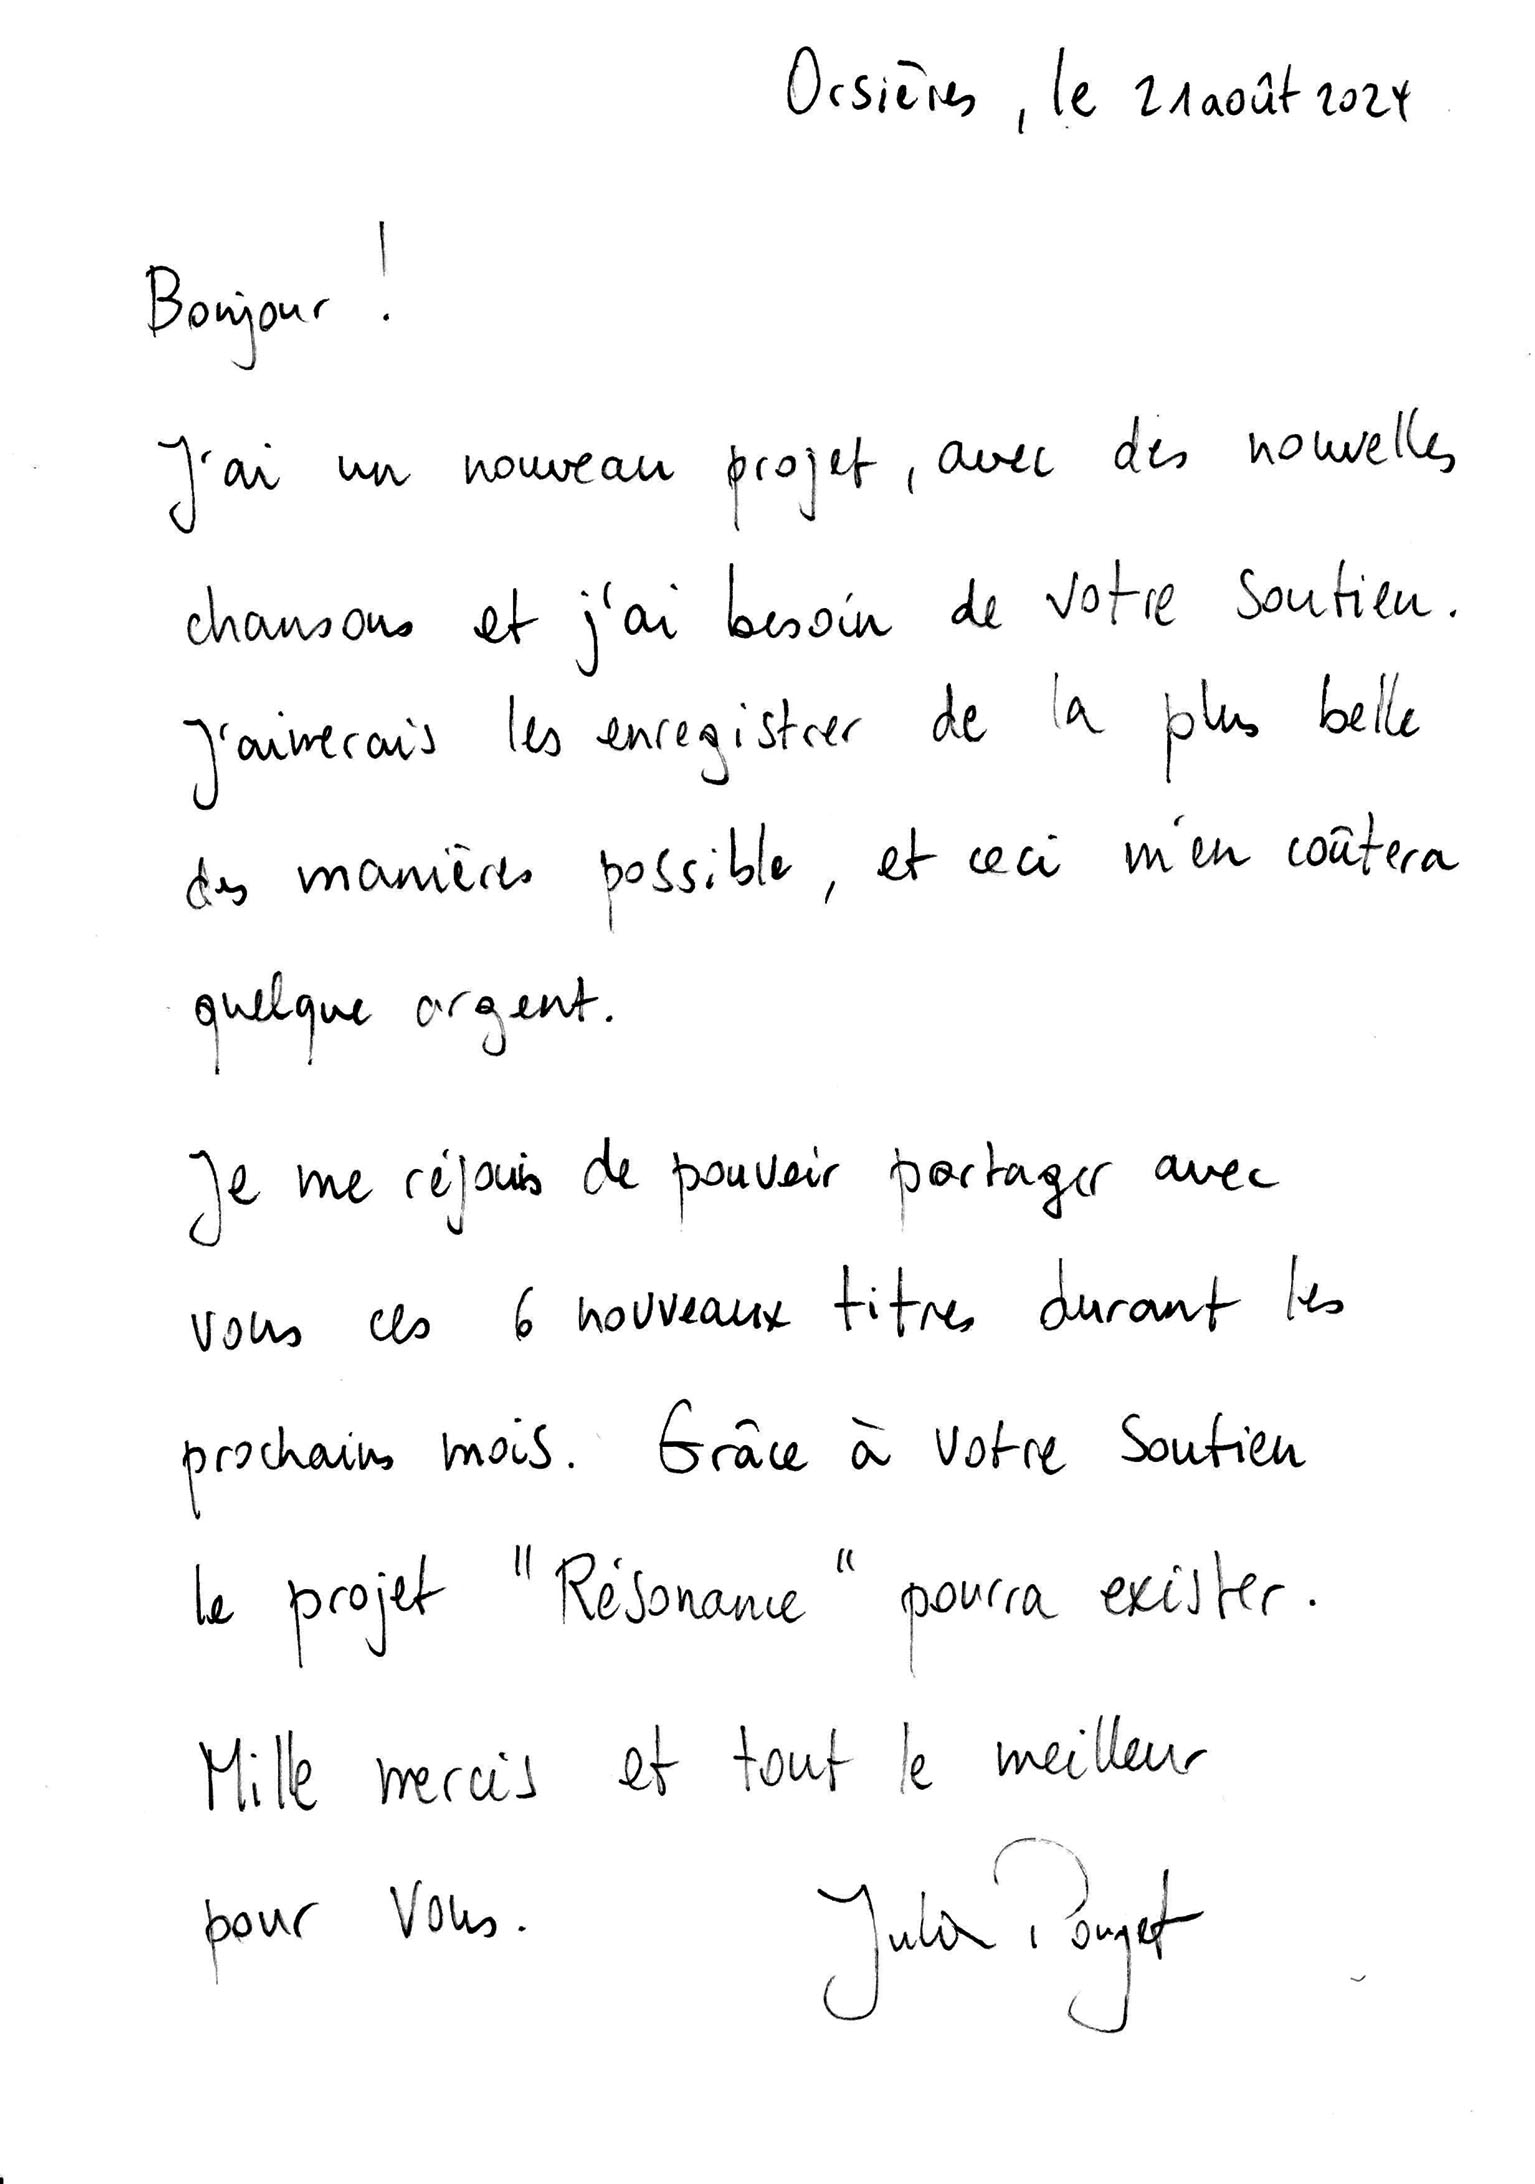 Orsières, le 21 août 2024
Bonjour !
J'ai un nouveau projet, avec des nouvelles
chansons et j'ai besoin de votre soutien.
J'aimerais les enregistrer de la plus belle
des manières possible, et ceci m'en coûtera
quelque argent.
Je me réjouis de pouvoir partager avec
vous ces 6 nouveaux titres durant les
prochains mois. Grâce à votre soutien
le projet "Résonance" pourra exister.
Mille mercis et tout le meilleur
pour vous. Julia Pouget